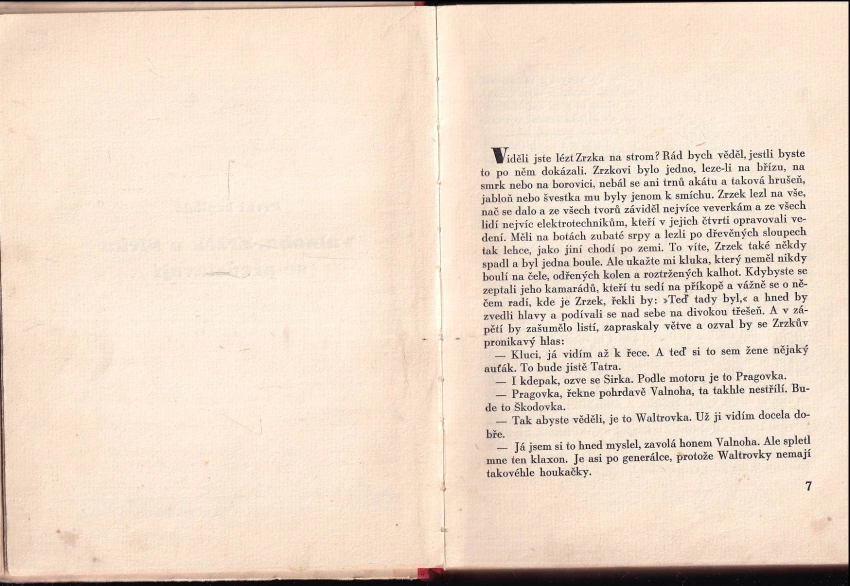 Viděli jste lézt Zrzka na strom? Rád bych věděl, jestli byste
to po něm dokázali. Zrzkovi bylo jedno, leze-li na břízu, na
smrk nebo na borovici, nebál se ani trnů akátu a taková hrušeň,
jabloň nebo švestka mu byly jenom k smíchu. Zrzek lezl na vše,
nač se dalo a ze všech tvorů záviděl nejvíce veverkám a ze všech
lidí nejvíc elektrotechnikům, kteří v jejich čtvrti opravovali ve-
dení. Měli na botách zubaté srpy a lezli po dřevěných sloupech
tak lehce, jako jiní chodí po zemi. To víte, Zrzek také někdy
spadl a byl jedna boule. Ale ukažte mi kluka, který neměl nikdy
boulí na čele, odřených kolen a roztržených kalhot. Kdybyste se
zeptali jeho kamarádů, kteří tu sedí na příkopě a vážně se o ně-
čem radí, kde je Zrzek, řekli by: »Teď tady byl,« a hned by
zvedli hlavy a podívali se nad sebe na divokou třešeň. A v zá-
pětí by zašumělo listí, zapraskaly větve a ozval by se Zrzkův
pronikavý hlas:
— Kluci, já vidím až k řece. A teď si to sem žene nějaký
auťák. To bude jistě Tatra.
— I kdepak, ozve se Sirka. Podle motoru je to Pragovka.
— Pragovka, řekne pohrdavě Valnoha, ta takhle nestřílí. Bu-
de to Škodovka.
— Tak abyste věděli, je to Waltrovka. Už ji vidím docela do-
bře.
— Já jsem si to hned myslel, zavolá honem Valnoha. Ale spletl
mne ten klaxon. Je asi po generálce, protože Waltrovky nemají
takovéhle houkačky.
7